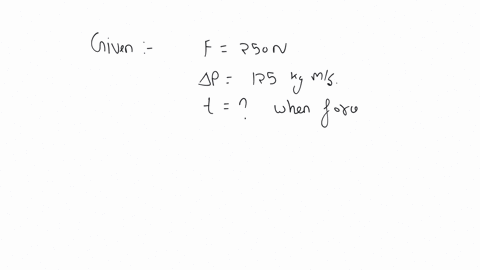 Given :- F = 250N
ΔP = 125 kg m/s.
t = ? when force